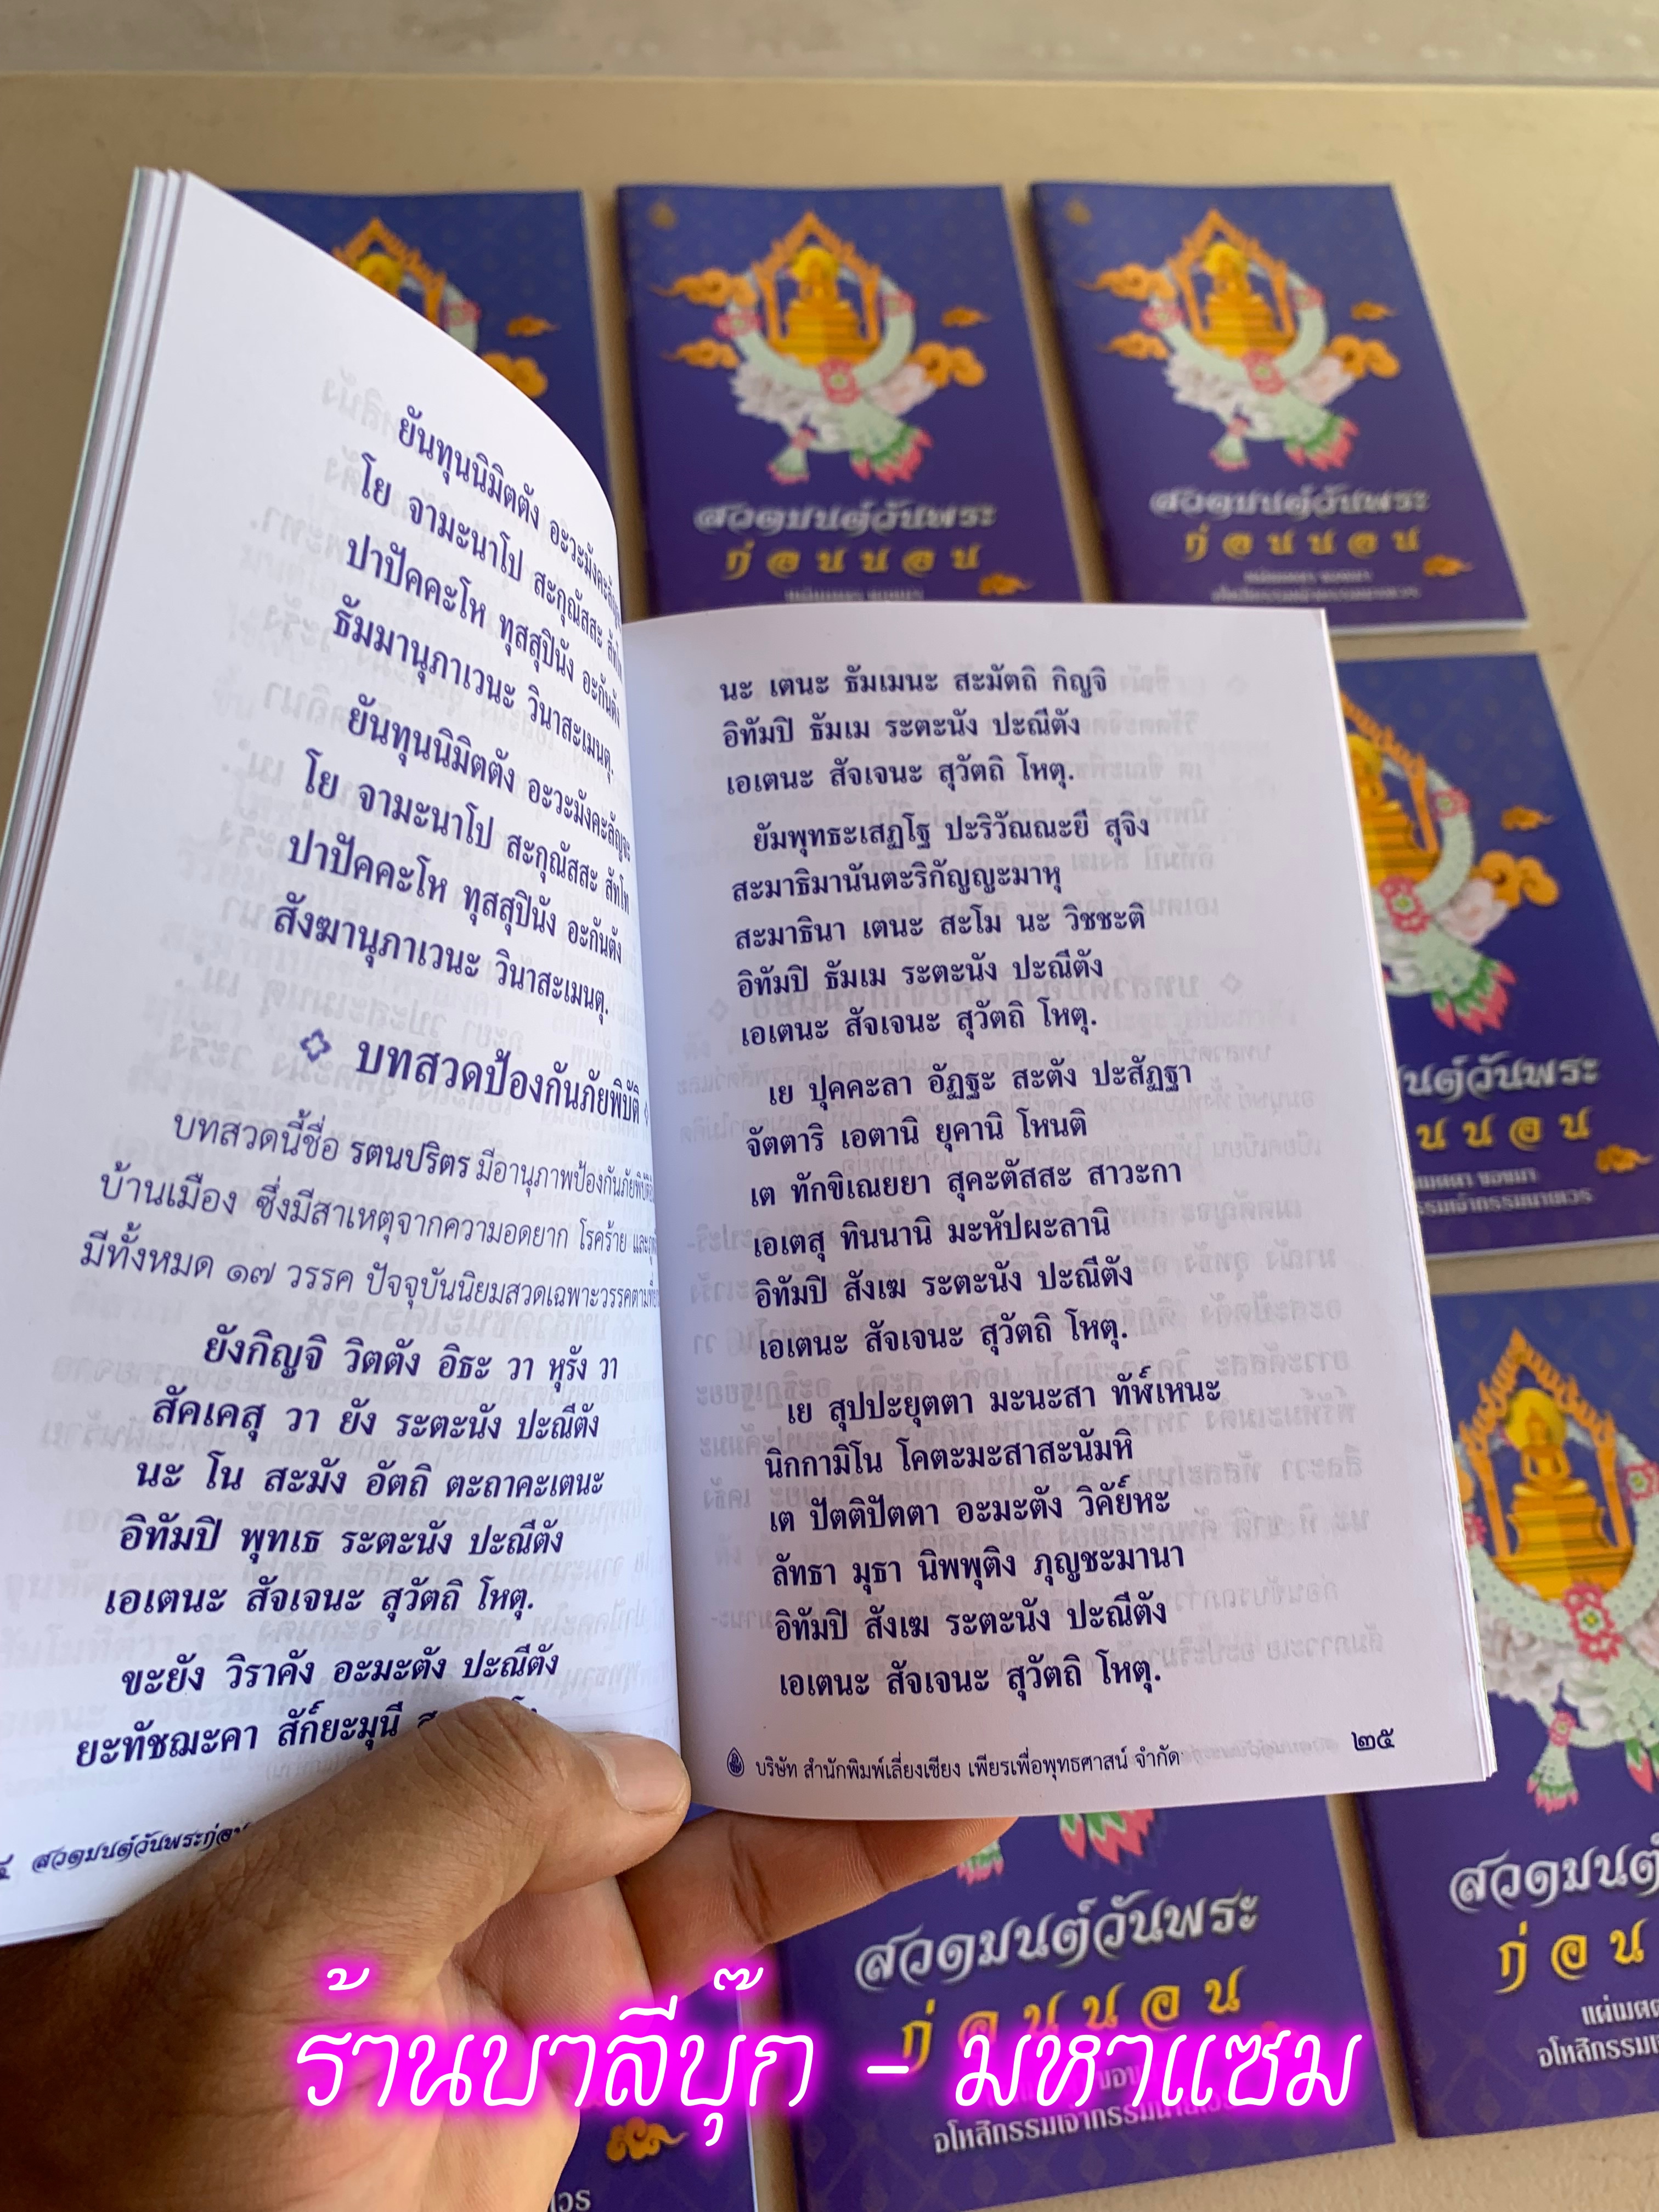 ยันทุนนิมิตตัง อะวะมังคะลัญจะ
โย จามะนาโป สะกุณัสสะ สัทโท
ปาปัคคะโห ทุสสุปินัง อะกันตัง
ธัมมานุภาเวนะ วินาสะเมนตุ.
ยันทุนนิมิตตัง อะวะมังคะลัญจะ
โย จามะนาโป สะกุณัสสะ สัทโท
ปาปัคคะโห ทุสสุปินัง อะกันตัง
สังฆานุภาเวนะ วินาสะเมนตุ.
บทสวดป้องกันภัยพิบัติ
บทสวดนี้ชื่อ รตนปริตร มีอานุภาพป้องกันภัยพิบัติ
บ้านเมือง ซึ่งมีสาเหตุจากความอดยาก โรคร้าย และ
มีทั้งหมด ๑๗ วรรค ปัจจุบันนิยมสวดเฉพาะวรรคตาม
ยังกิญจิ วิตตัง อิธะ วา หุรัง วา
สัคเคสุ วา ยัง ระตะนัง ปะณีตัง
นะ โน สะมัง อัตถิ ตะถาคะเตนะ
อิทัมปิ พุทเธ ระตะนัง ปะณีตัง
เอเตนะ สัจเจนะ สุวัตถิ โหตุ.
ขะยัง วิราคัง อะมะตัง ปะณีตัง
ยะทัชฌะคา สัก๎ยะมุนี
สวดมนต์วันพระก่อน
นะ เตนะ ธัมเมนะ สะมัตถิ กิญจิ
อิทัมปิ ธัมเม ระตะนัง ปะณีตัง
เอเตนะ สัจเจนะ สุวัตถิ โหตุ.
ยัมพุทธะเสฏโฐ ปะริวัณณะยี สุจิง
สะมาธิมานันตะริกัญญะมาหุ
สะมาธินา เตนะ สะโม นะ วิชชะติ
อิทัมปิ ธัมเม ระตะนัง ปะณีตัง
เอเตนะ สัจเจนะ สุวัตถิ โหตุ.
เย ปุคคะลา อัฏฐะ สะตัง ปะสัฏฐา
จัตตาริ เอตานิ ยุคานิ โหนติ
เต ทักขิเณยยา สุคะตัสสะ สาวะกา
เอเตสุ ทินนานิ มะหัปผะลานิ
อิทัมปิ สังเฆ ระตะนัง ปะณีตัง
เอเตนะ สัจเจนะ สุวัตถิ โหตุ.
เย สุปปะยุตตา มะนะสา ทัฬ๎เหนะ
นิกกามิโน โคตะมะสาสะนัมหิ
เต ปัตติปัตตา อะมะตัง วิคัย๎หะ
ลัทธา มุธา นิพพุติง ภุญชะมานา
อิทัมปิ สังเฆ ระตะนัง ปะณีตัง
เอเตนะ สัจเจนะ สุวัตถิ โหตุ.
บริษัท สำนักพิมพ์เลี่ยงเชียง เพียรเพื่อพุทธศาสน์ จำกัด
๒๕
สวดมนต์วันพระ
ก่อนนอน
สวดมนต์วันพระ
ก่อนนอน
นต์วันพระ
นนอน
สวดมนต์วันพระ
ก่อนนอน
อโหสิกรรมเจ้ากรรมนายเวร
สวดมนต์
ก่อน
แผ่เมตต
อโหสิกรรม
ร้านบาลีบุ๊ก - มหาแซม